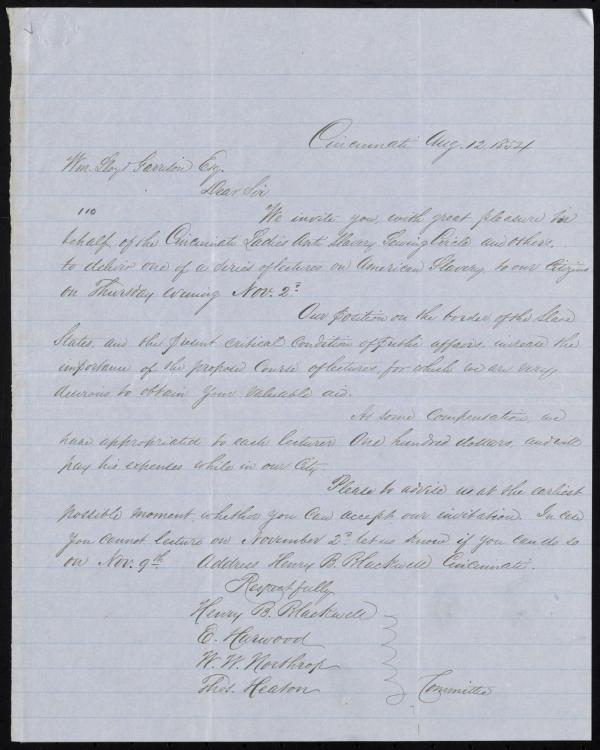 Cincinnati Aug. 12. 1854
Wm. Lloyd Garrison Esq.
Dear Sir
We invite you, with great pleasure in
behalf of the Cincinnati Ladies Anti Slavery Sewing Circle and others,
to deliver one of a series of lectures on American Slavery, to our Citizens
on Thursday evening Nov. 2d.
Our position on the border of the Slave
States, and the present critical condition of public affairs, increase the
importance of the proposed Course of lectures, for which we are very
desirous to obtain your valuable aid.
As some Compensation, we
have appropriated to each lecturer One hundred dollars, and will
pay his expenses while in our City.
Please to advise us at the earliest
possible moment, whether you can accept our invitation. In case
you cannot lecture on November 2d. let us know if you can do so
on Nov. 9th. Address Henry B. Blackwell Cincinnati.
Respectfully
Henry B. Blackwell
E. Harwood
W. W. Northrop
Thos. Heaton
Committee